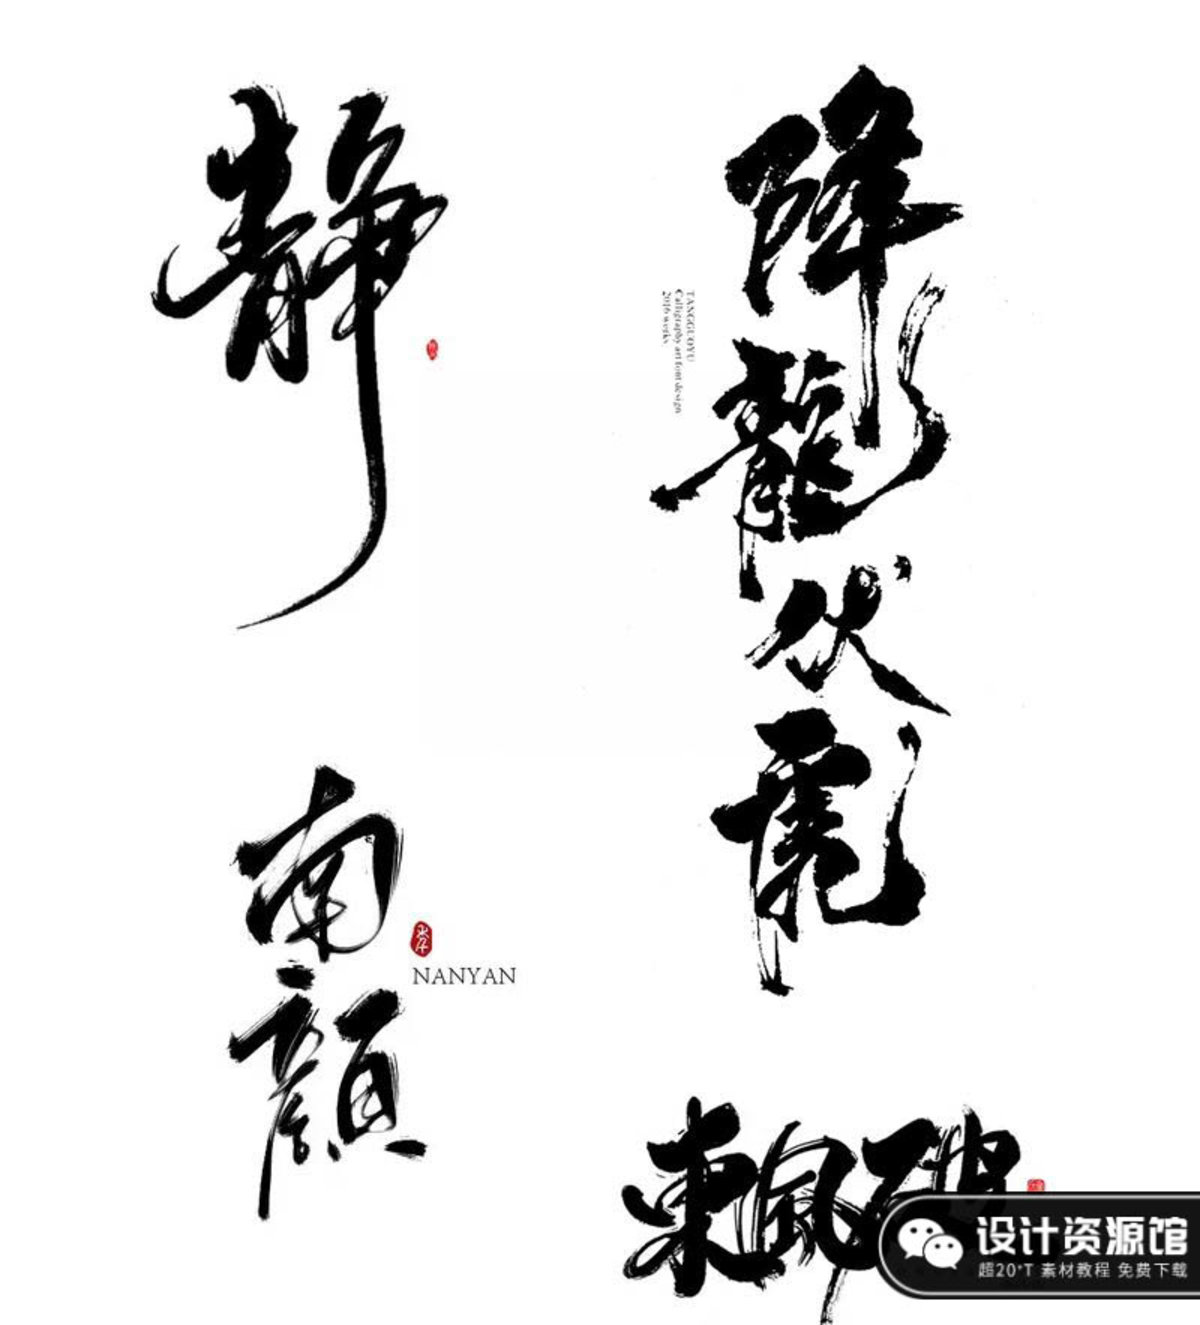 静
降龍伏虎
TANGGUOYU
Calligraphy art font design
2016 works
南顔
NANYAN
東風破
设计资源馆
超20*T 素材教程 免费下载